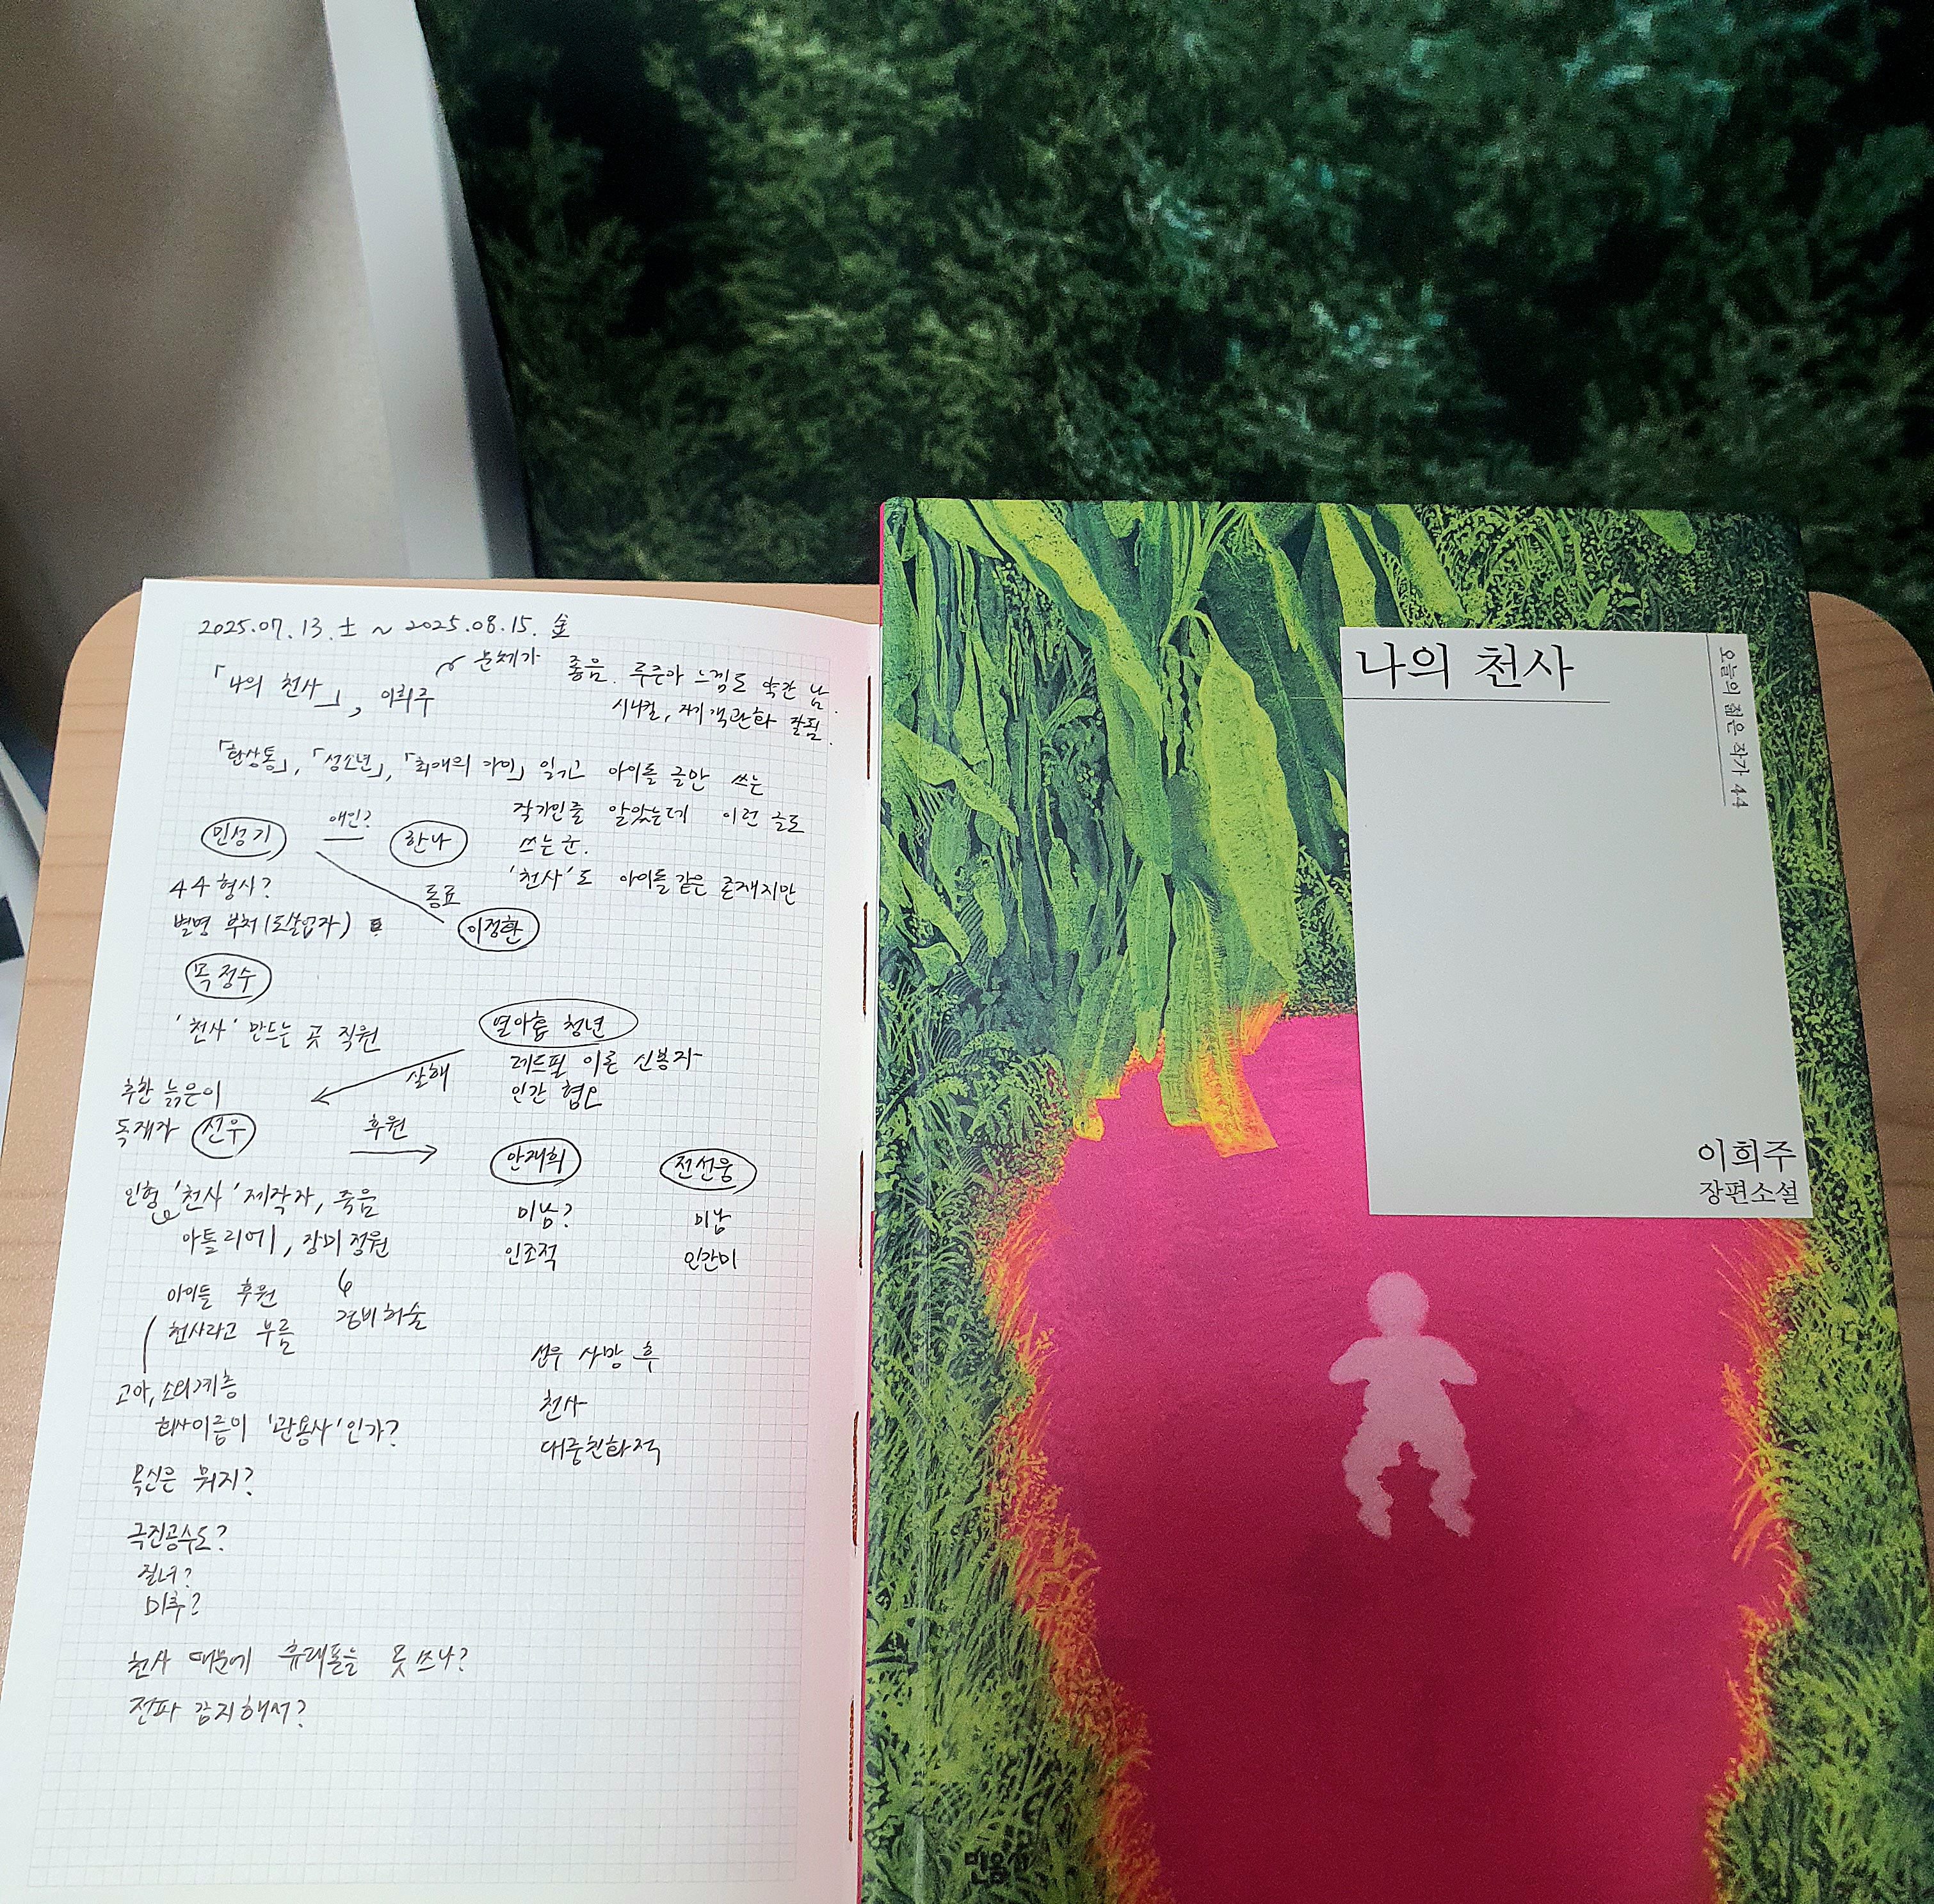 2025.07.13.土 ~ 2025.08.15. 金
문체가 좋음. 루준아 느낌도 약간 남.
「나의 천사」, 이희주
시니컬, 자기객관화 잘됨.
「환상통」, 「성소년」, 「최애의 아이」 읽고 아이돌 글만 쓰는
작가인줄 알았는데 이런 글도
쓰는군.
'천사'도 아이돌같은 존재지만
민성기 애인? 한나
44 형사?
동료
별명 부처(도살업자)
이정환
목정수
'천사' 만드는 곳 직원
열아홉 청년
레드필 이론 신봉자
인간 혐오
살해
추한 늙은이
독재자 선우
후원
안재희
전선웅
인형 '천사' 제작자, 죽음
미남?
미남
아틀리에, 장미 정원
인조적
인간미
아이들 후원
경비 허술
천사라고 부름
선우 사망 후
고아, 소외계층
천사
회사이름이 '관용사'인가?
대중친화적
목신은 뭐지?
극진공수도?
질녀?
미추?
천사 때문에 휴대폰을 못 쓰나?
전파 감지해서?
나의 천사
오늘의 젊은 작가 44
이희주
장편소설
민음사